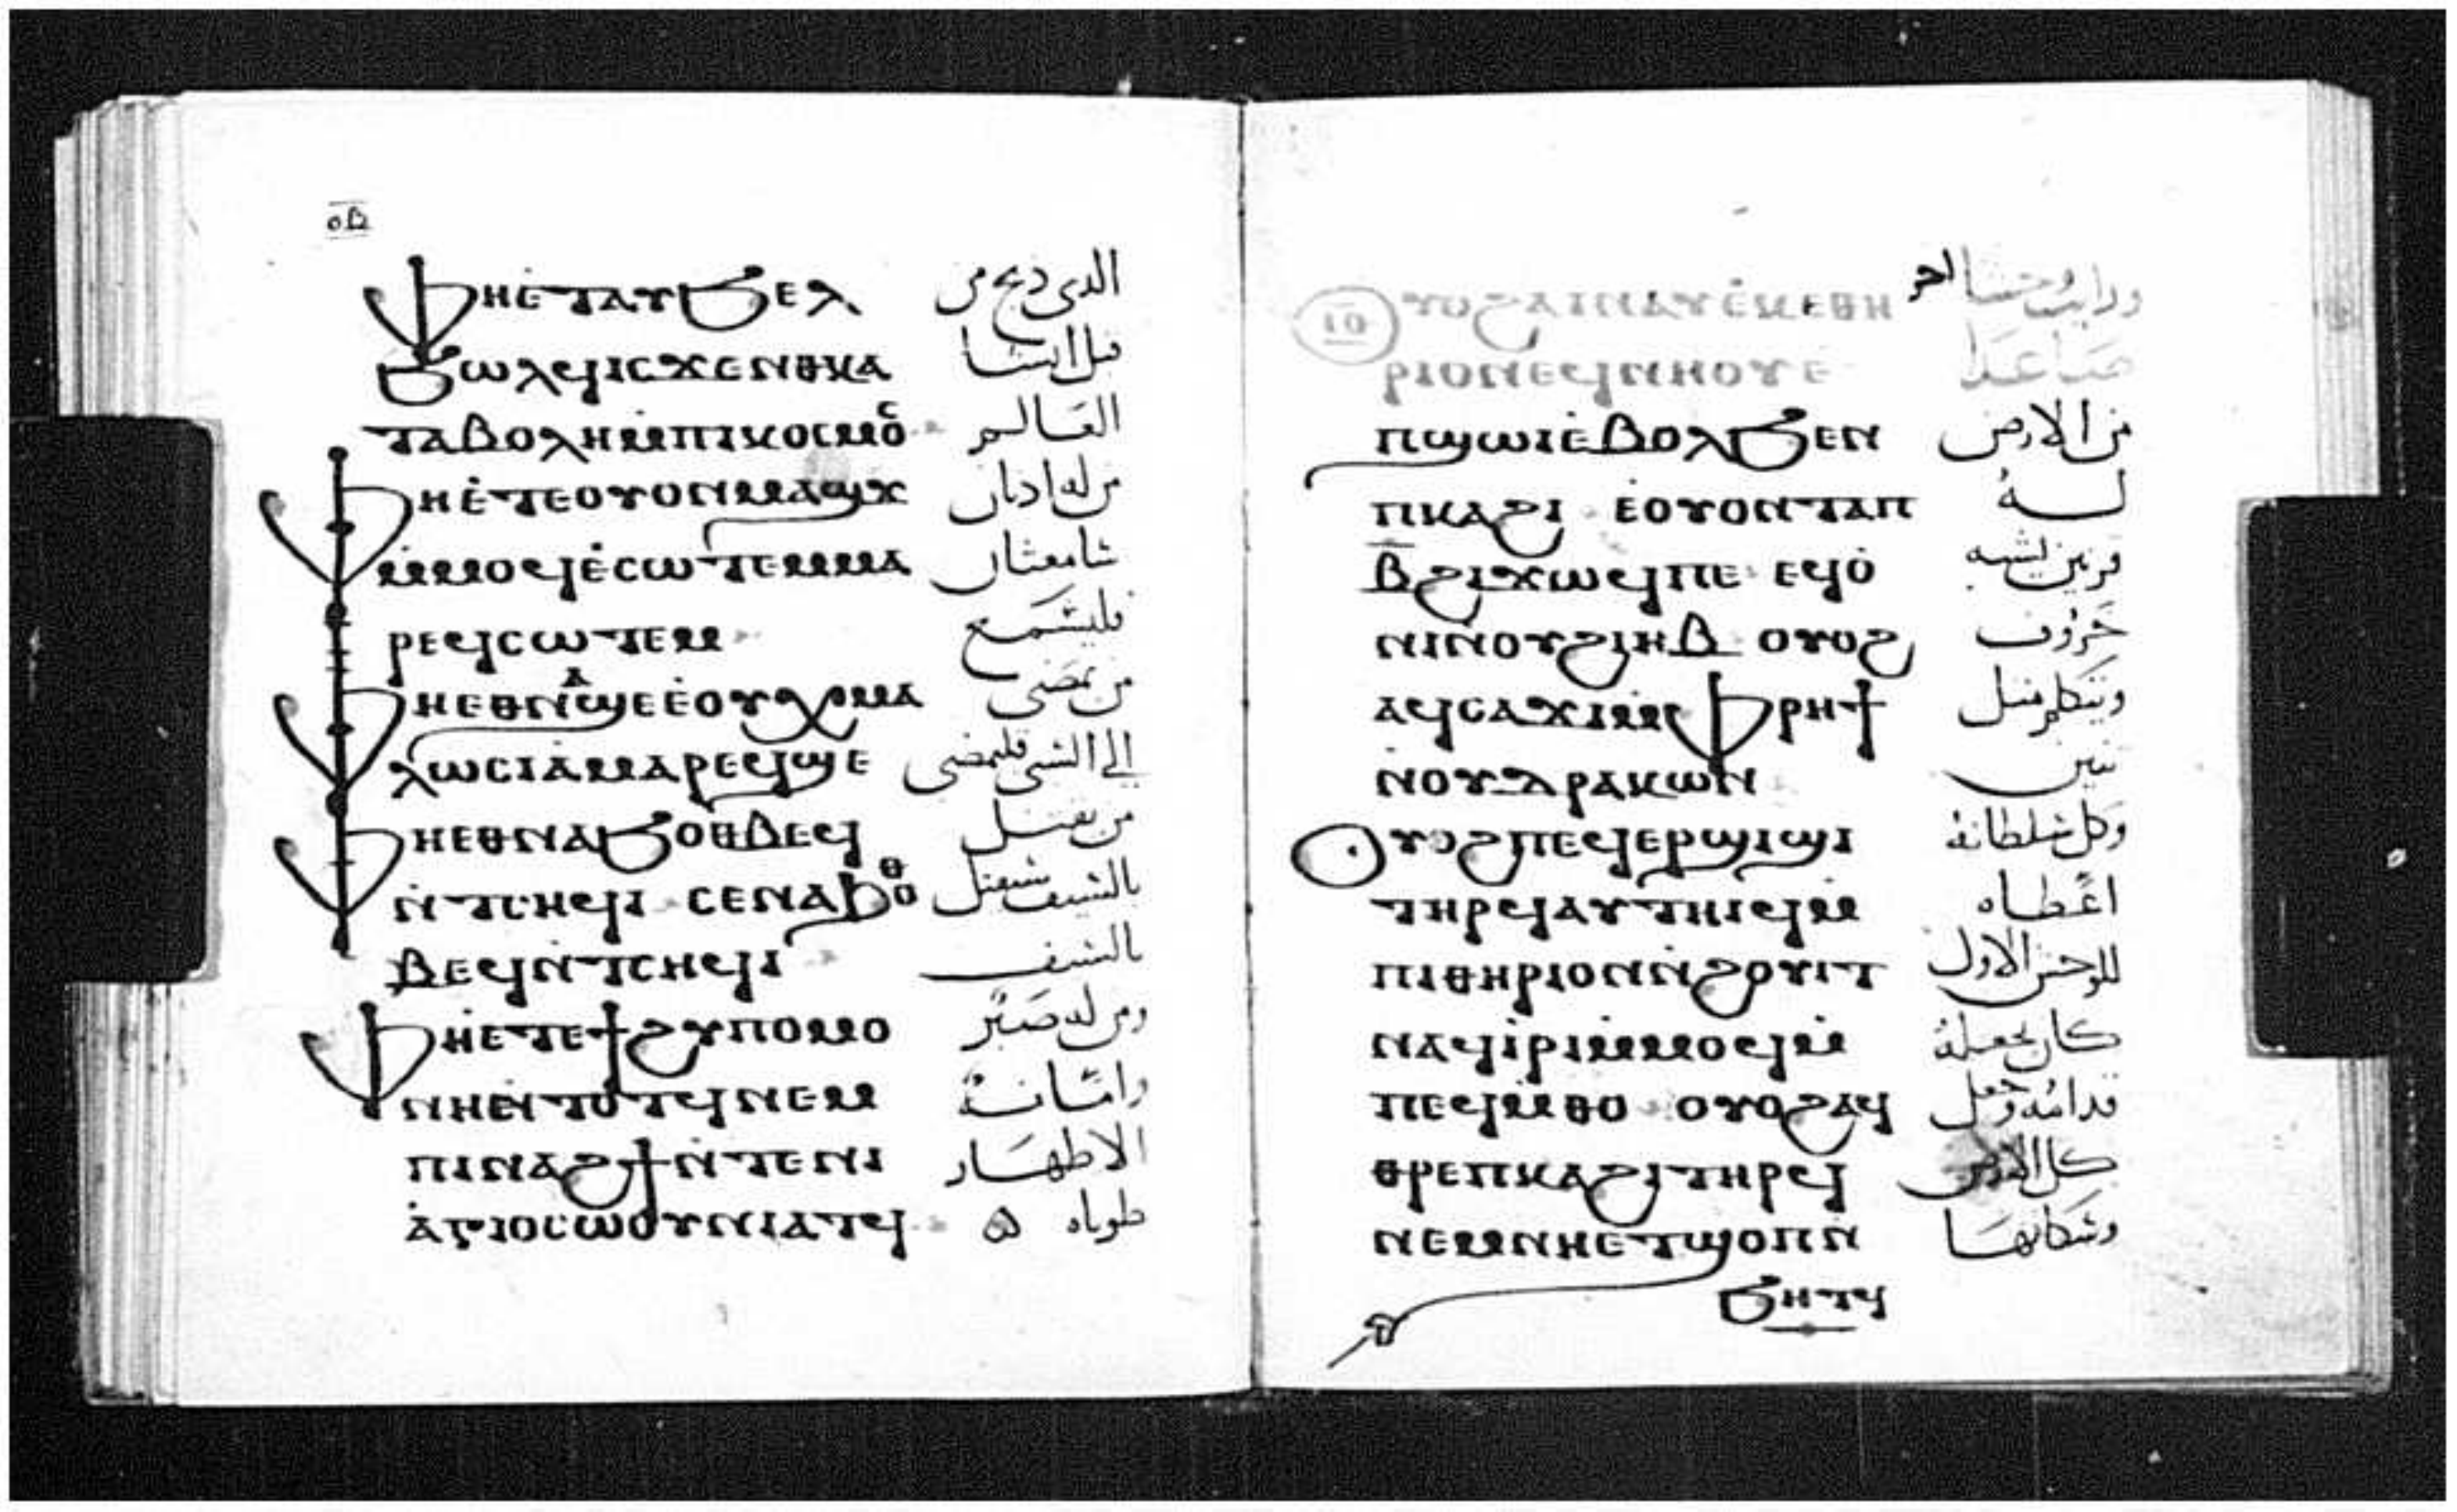 ⲟⲃ
ⲫⲏⲉ̇ⲧⲁⲩϧⲉⲗ الدى دبح من
ϧⲱⲗϥⲓⲥϫⲉⲛⲑⲕⲁ قبل انشا
ⲧⲁⲃⲟⲗⲏⲙ̇ⲡⲓⲕⲟⲥⲙⲟⲥ العَالم
ⲫⲏⲉ̇ⲧⲉⲟⲩⲟⲛⲙⲁϣϫ من له ادنان
ⲙ̇ⲙⲟϥⲉ̇ⲥⲱⲧⲉⲙⲙⲁ سامعتان
ⲣⲉϥⲥⲱⲧⲉⲙ فليسمَع
ⲫⲏⲉⲑⲛⲁϣⲉⲉ̇ⲟⲩⲭⲙⲁ من يمضى
ⲗⲱⲥⲓⲁ̇ⲙⲁⲣⲉϥϣⲉ الى السبى فليمضى
ⲫⲏⲉⲑⲛⲁϧⲟⲑⲃⲉϥ من يقتل
ⲛ̇ⲧⲥⲏϥⲓ ⲥⲉⲛⲁϧⲟⲑ بالسيف سيقتل
ⲃⲉϥⲛ̇ⲧⲥⲏϥⲓ بالسيف
ⲫⲏⲉⲧⲉϯϩⲩⲡⲟⲙⲟ ومن له صَبْر
ⲛⲏⲉ̇ⲛⲧⲟⲧϥⲛⲉⲙ وامَانة
ⲡⲓⲛⲁϩϯⲛ̇ⲧⲉⲛⲓ الاطهَار
ⲁ̇ⲅⲓⲟⲥⲱⲟⲩⲛⲓⲁⲧϥ طوباه ه
ⲟⲩⲟϩⲁⲓⲛⲁⲩⲉ̇ⲕⲉⲑⲏ ورايت وحشا اخر
ⲣⲓⲟⲛⲉϥⲛⲏⲟⲩⲉ̇ صَاعدا
ⲡϣⲱⲓⲉ̇ⲃⲟⲗϧⲉⲛ من الارض
ⲡⲕⲁϩⲓ ⲉ̇ⲟⲩⲟⲛⲧⲁⲡ لــه
ⲃ̅ϩⲓϫⲱϥⲡⲉ ⲉϥⲟ̇ قرنين يشبه
ⲛⲓⲛ̇ⲟⲩϩⲓⲏⲃ ⲟⲩⲟϩ خَروف
ⲁϥⲥⲁϫⲓⲙ̇ⲫⲣⲏϯ ويتكلم مثل
ⲛ̇ⲟⲩⲇⲣⲁⲕⲱⲛ تنين
ⲟⲩⲟϩⲡⲉϥⲉⲣϣⲓϣⲓ وكل سلطانه
ⲧⲏⲣϥⲁⲩⲧⲏⲓϥⲙ̇ اعْطاه
ⲡⲓⲑⲏⲣⲓⲟⲛⲛ̇ϩⲟⲩⲓⲧ للوحش الاول
ⲛⲁϥⲓ̇ⲣⲓⲙ̇ⲙⲟϥⲙ̇ كان يجعله
ⲡⲉϥⲙ̇ⲑⲟ ⲟⲩⲟϩⲁϥ قدامه وجعل
ⲑⲣⲉⲡⲕⲁϩⲓⲧⲏⲣϥ كل الارض
ⲛⲉⲙⲛⲏⲉⲧϣⲟⲡⲛ̇ وسكانهَا
ϧⲏⲧϥ